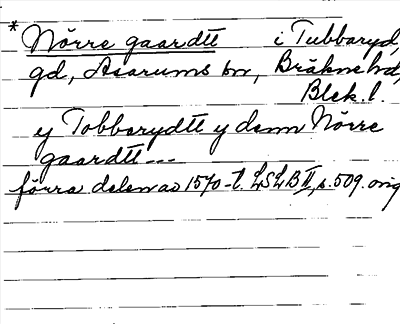 * Nörre gaardtt i Tubbaryd,
gd, Asarums sn, Bräkne hd,
Blek. l.
y Tobbarydtt y denn Nörre
gaardtt ---
förra delen av 1570-t. LSLB II, s. 509. orig